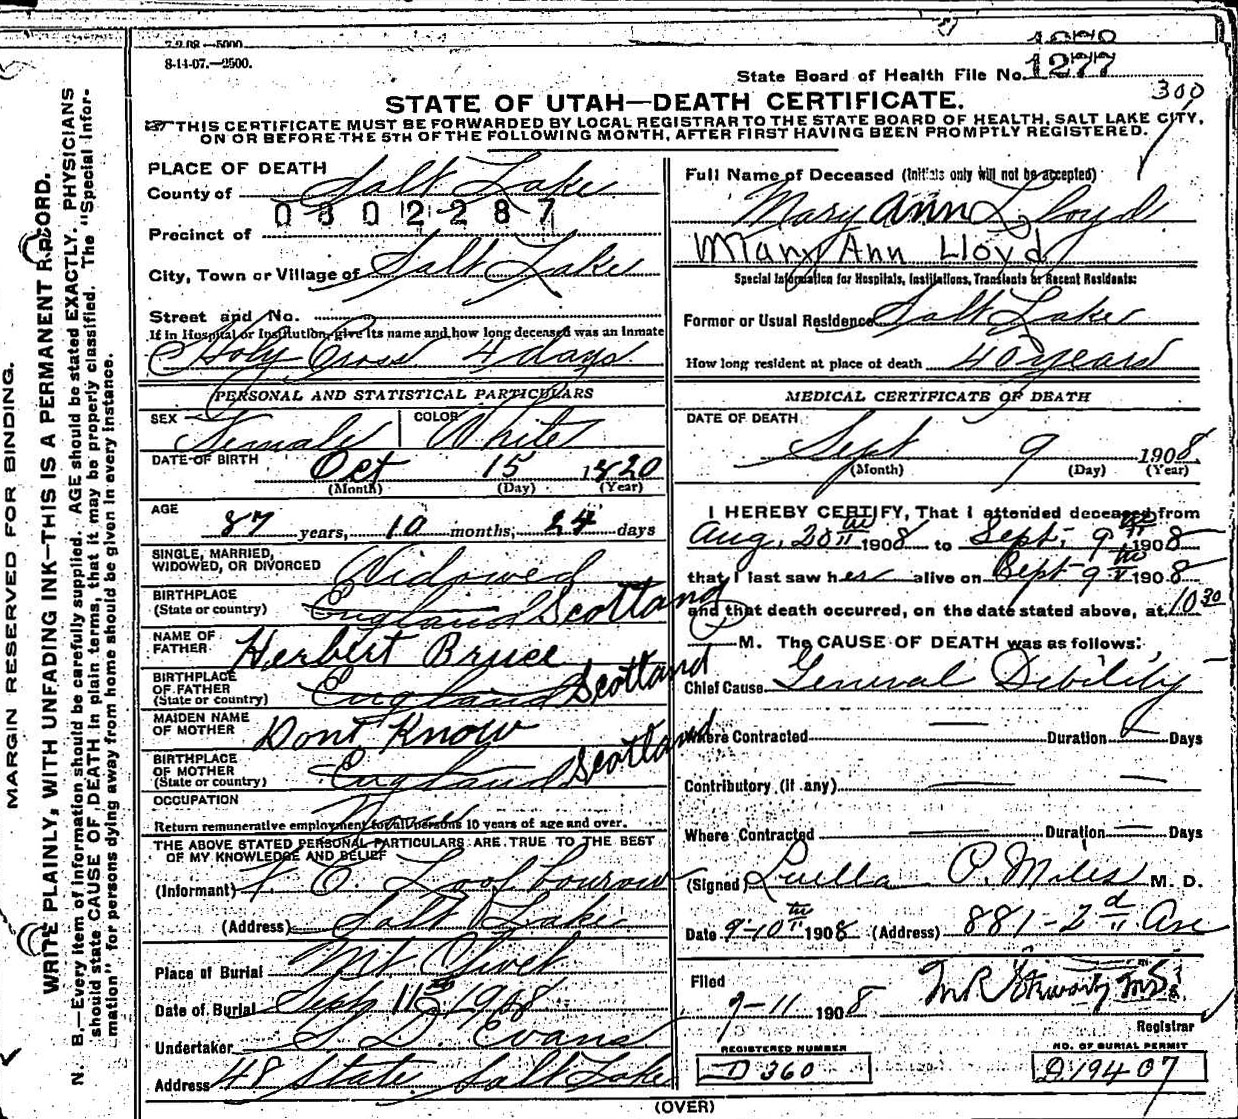 7-2-08—5000
8-14-07.—2500.
1277
State Board of Health File No. 1277
300
STATE OF UTAH—DEATH CERTIFICATE.
THIS CERTIFICATE MUST BE FORWARDED BY LOCAL REGISTRAR TO THE STATE BOARD OF HEALTH, SALT LAKE CITY,
ON OR BEFORE THE 5TH OF THE FOLLOWING MONTH, AFTER FIRST HAVING BEEN PROMPTLY REGISTERED.
MARGIN RESERVED FOR BINDING.
WRITE PLAINLY, WITH UNFADING INK—THIS IS A PERMANENT RECORD.
N. B.—Every item of information should be carefully supplied. AGE should be stated EXACTLY. PHYSICIANS
should state CAUSE OF DEATH in plain terms, that it may be properly classified. The "Special Infor-
mation" for persons dying away from home should be given in every instance.
PLACE OF DEATH
County of Salt Lake
0802287
Precinct of
City, Town or Village of Salt Lake
Street and No.
If in Hospital or Institution, give its name and how long deceased was an inmate
Holy Cross 4 days
PERSONAL AND STATISTICAL PARTICULARS
SEX Female COLOR White
DATE OF BIRTH Oct 15 1820
(Month) (Day) (Year)
AGE
87 years, 10 months, 24 days
SINGLE, MARRIED,
WIDOWED, OR DIVORCED Widowed
BIRTHPLACE
(State or country) England Scotland
NAME OF
FATHER Herbert Bruce
BIRTHPLACE
OF FATHER
(State or country) England Scotland
MAIDEN NAME
OF MOTHER Dont Know
BIRTHPLACE
OF MOTHER
(State or country) England Scotland
OCCUPATION None
Return remunerative employment for all persons 10 years of age and over.
THE ABOVE STATED PERSONAL PARTICULARS ARE TRUE TO THE BEST
OF MY KNOWLEDGE AND BELIEF
(Informant) F. C. Loofbourow
(Address) Salt Lake
Place of Burial Mt Olivet
Date of Burial Sep 11th 1908
Undertaker S. D. Evans
Address 48 State Salt Lake
Full Name of Deceased (Initials only will not be accepted)
Mary Ann Lloyd
Mary Ann Lloyd
Special Information for Hospitals, Institutions, Transients or Recent Residents:
Former or Usual Residence Salt Lake
How long resident at place of death 40 years
MEDICAL CERTIFICATE OF DEATH
DATE OF DEATH
Sept 9 1908
(Month) (Day) (Year)
I HEREBY CERTIFY, That I attended deceased from
Aug. 20th 1908 to Sept. 9th 1908
that I last saw her alive on Sept 9th 1908
and that death occurred, on the date stated above, at 10 30
P M. The CAUSE OF DEATH was as follows:
Chief Cause General Debility
Where Contracted — Duration Days
Contributory (if any) — —
Where Contracted — Duration — Days
(Signed) Luella P. Miles M. D.
Date 9-10th 1908 (Address) 881-2d Ave
Filed
9-11 1908 M R Stewart M.D.
Registrar
REGISTERED NUMBER
D 360
NO. OF BURIAL PERMIT
D.19407
(OVER)